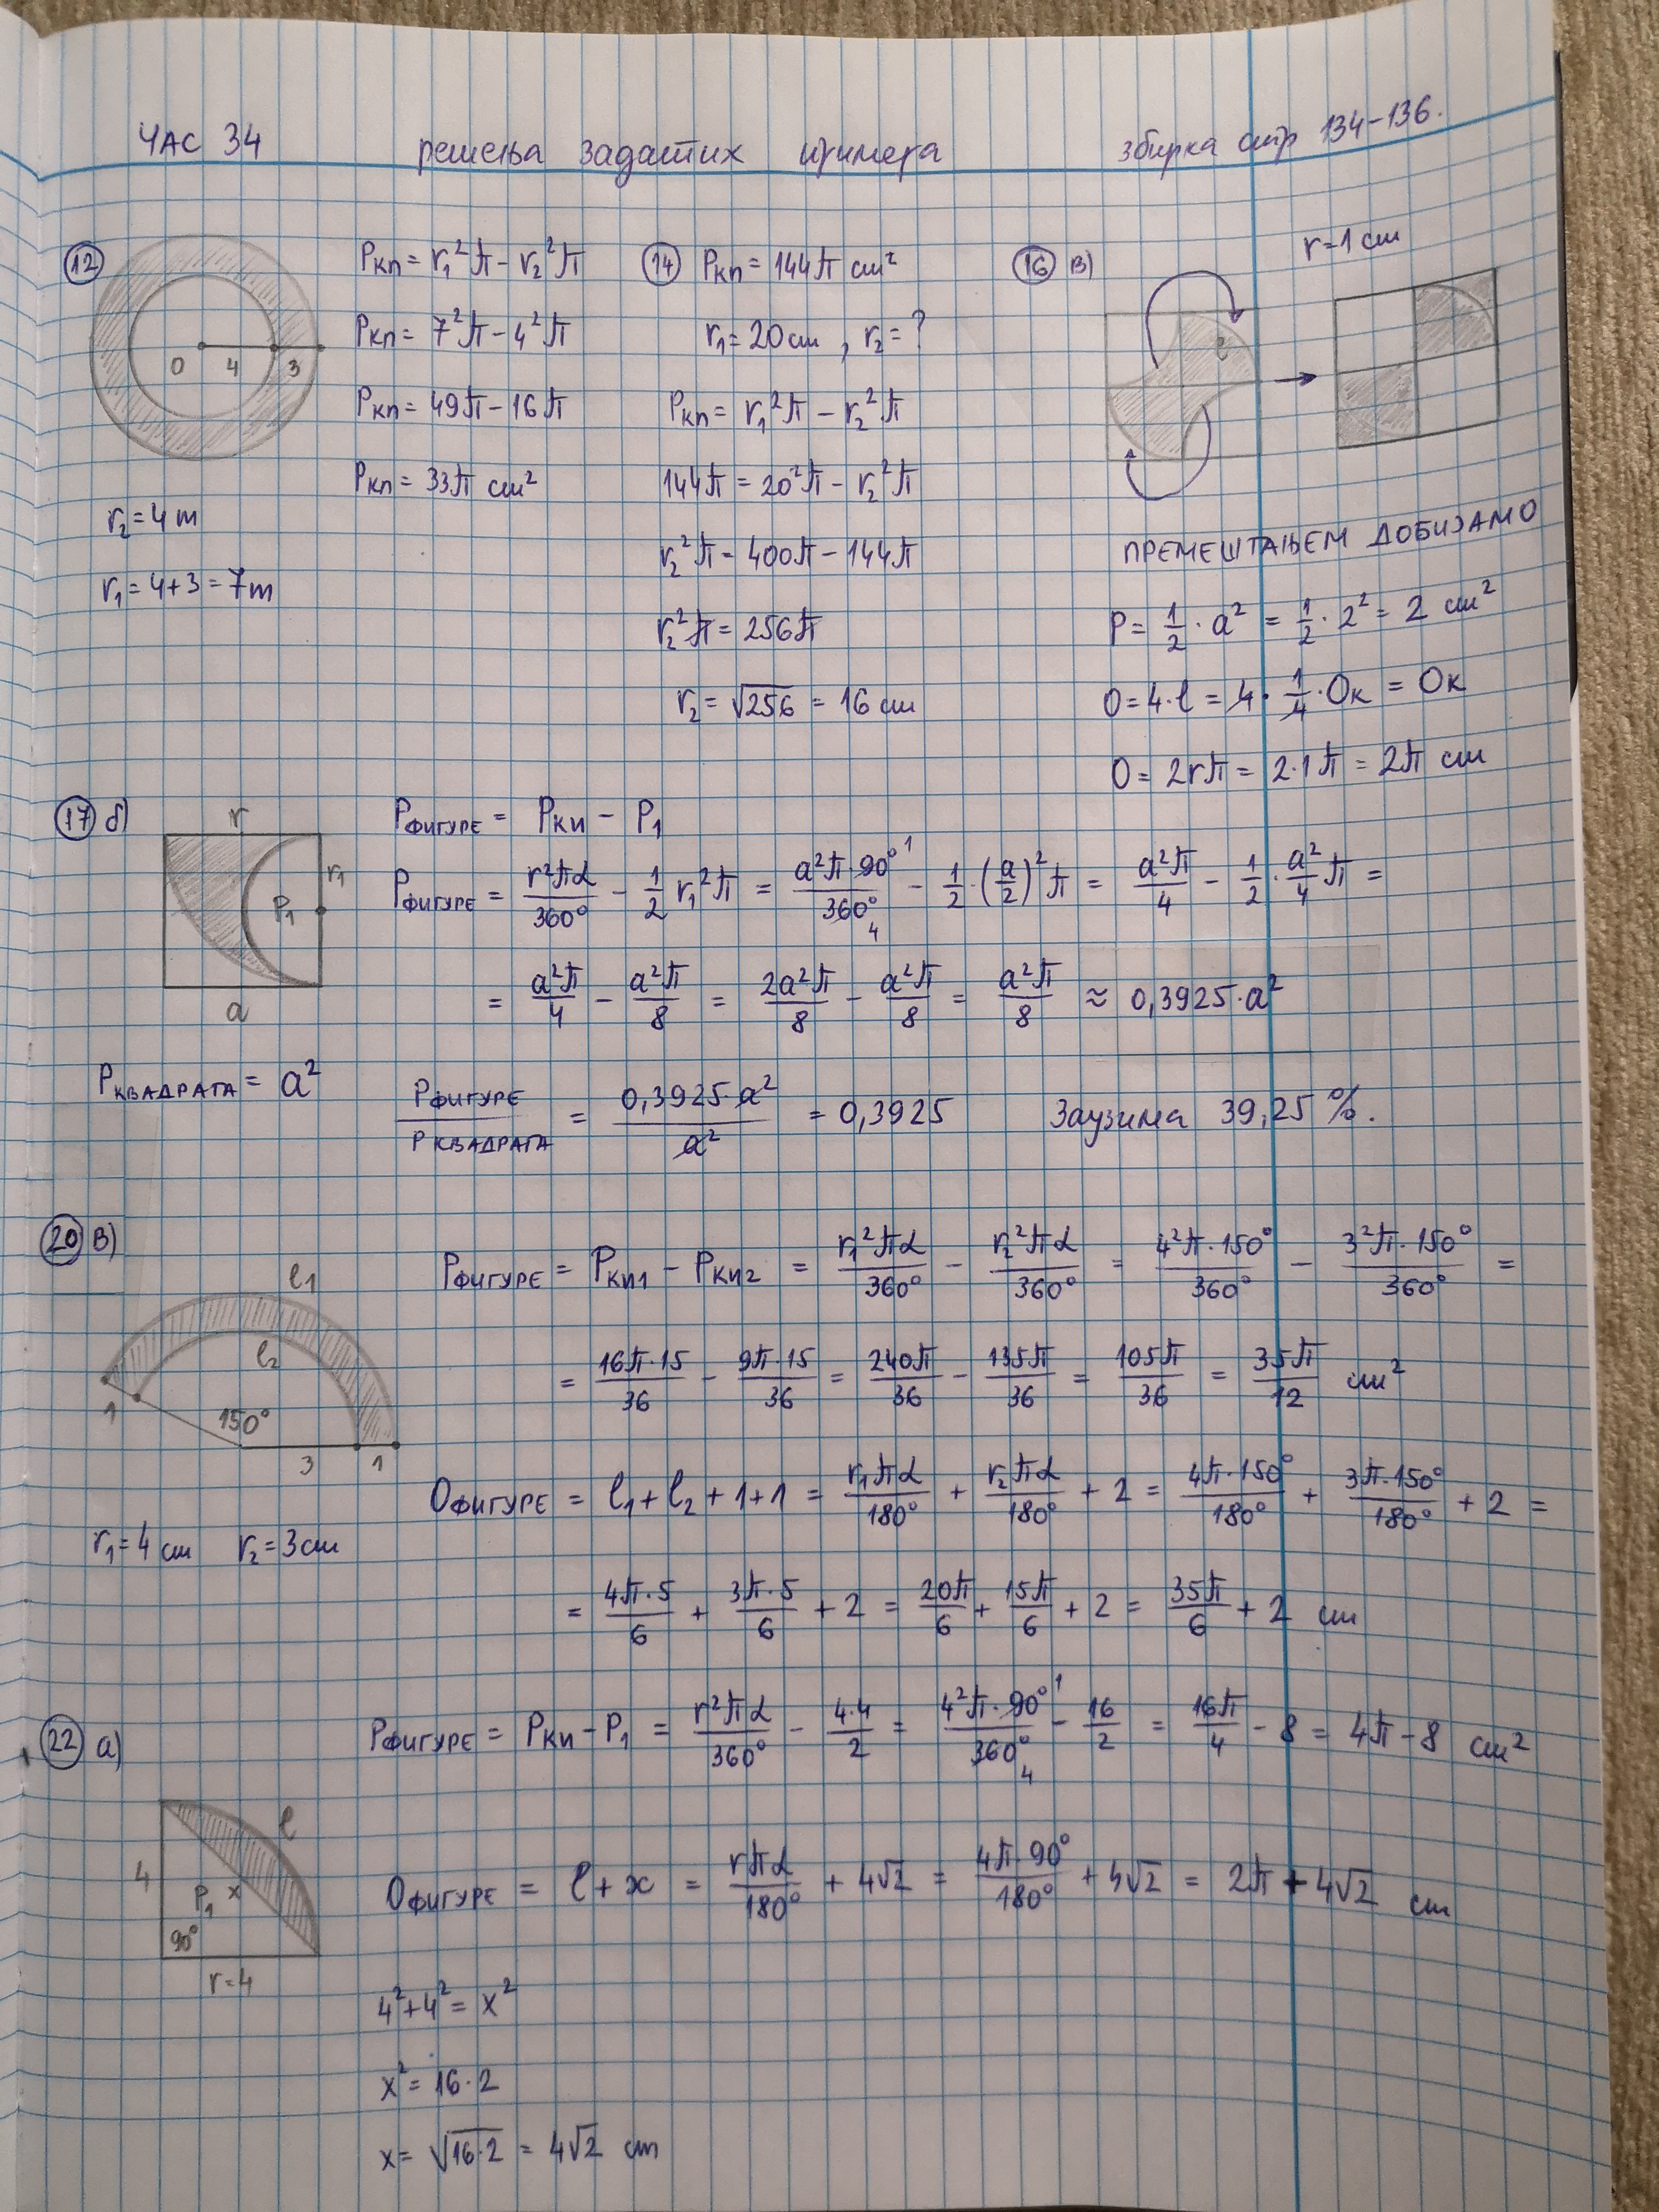 ЧАС 34 решења задатих примера збирка стр 134-136.
12
O 4 3
Pкп = r₁²π - r₂²π
Pкп = 7²π - 4²π
Pкп = 49π - 16π
Pкп = 33π cm²
r₂ = 4 m
r₁ = 4+3 = 7 m
14 Pкп = 144π cm²
r₁ = 20 cm, r₂ = ?
Pкп = r₁²π - r₂²π
144π = 20²π - r₂²π
r₂²π = 400π - 144π
r₂²π = 256π
r₂ = √256 = 16 cm
16 в) r = 1 cm
l
ПРЕМЕШТАЊЕМ ДОБИЈАМО
P = 1/2 · a² = 1/2 · 2² = 2 cm²
O = 4·l = 4 · 1/4 · Oк = Oк
O = 2rπ = 2·1π = 2π cm
17 б)
r
r₁
P₁
a
Pфигуре = Pки - P₁
Pфигуре = r²πα/360° - 1/2 r₁²π = a²π·90° 1/360° 4 - 1/2·(a/2)²π = a²π/4 - 1/2 · a²/4 π =
= a²π/4 - a²π/8 = 2a²π/8 - a²π/8 = a²π/8 ≈ 0,3925·a²
Pквадрата = a²
Pфигуре/Pквадрата = 0,3925·a²/a² = 0,3925 Заузима 39,25 %.
20 в)
l₁
l₂
1 150° 3 1
r₁ = 4 cm r₂ = 3 cm
Pфигуре = Pки1 - Pки2 = r₁²πα/360° - r₂²πα/360° = 4²π·150°/360° - 3²π·150°/360° =
= 16π·15/36 - 9π·15/36 = 240π/36 - 135π/36 = 105π/36 = 35π/12 cm²
Oфигуре = l₁ + l₂ + 1 + 1 = r₁πα/180° + r₂πα/180° + 2 = 4π·150°/180° + 3π·150°/180° + 2 =
= 4π·5/6 + 3π·5/6 + 2 = 20π/6 + 15π/6 + 2 = 35π/6 + 2 cm
22 а)
l
4
P₁ x
90°
r=4
Pфигуре = Pки - P₁ = r²πα/360° - 4·4/2 = 4²π·90° 1/360° 4 - 16/2 = 16π/4 - 8 = 4π - 8 cm²
Oфигуре = l + x = rπα/180° + 4√2 = 4π·90°/180° + 4√2 = 2π + 4√2 cm
4² + 4² = x²
x² = 16·2
x = √16·2 = 4√2 cm